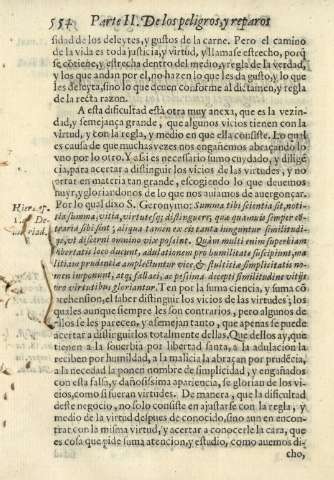 554 Parte II. De los peligros, y reparos
sidad de los deleytes, y gustos de la carne. Pero el camino
de la vida es toda justicia, y virtud, y llamase estrecho, porq̃
se cõtiene, y estrecha dentro del medio, y regla de la verdad,
y los que andan por el, no hazen lo que les da gusto, y lo que
les deleyta, sino lo que deuen conforme al dictamen, y regla
de la recta razon.
A esta dificultad està otra muy anexa, que es la vezin-
dad, y semejança grande, que algunos vicios tienen con la
virtud, y con la regla, y medio en que ella consiste. Lo qual
es causa de que muchas vezes nos engañemos abraçando lo
vno por lo otro. Y assi es necessario sumo cuydado, y dilige-
cia, para acertar a distinguir los vicios de las virtudes, y no
errar en materia tan grande, escogiendo lo que deuemos
huyr, y gloriandonos de lo que nos auiamos de auergonçar.
Por lo qual dixo S. Geronymo: Summa tibi scientia sit, noti-
tia summa, vitia, virtutesq; distinguere, quæ quamuis semper cõ-
traria sibi sint; aliqua tamen ex eis tanta iunguntur similitudi-
ne, vt discerni omnino vix possint. Quàm multi enim superbiam
libertatis loco ducunt, adulationem pro humilitate suscipiunt, ma
litiam prudentiæ amplectuntur vice, & stultitia simplicitatis no-
men imponunt, atq; fallaci, ac pessima decepti similitudine vitijs
pro virtutibus gloriantur. Ten por la suma ciencia, y suma cõ
prehension, el saber distinguir los vicios de las virtudes; los
quales aunque siempre les son contrarios, pero algunos de
ellos se les parecen, y asemejan tanto, que apenas se puede
acertar a distinguirlos totalmente dellas. Que dellos ay, que
tienen a la souerbia por libertad santa, a la adulacion la
reciben por humildad, a la malicia la abraçan por prudẽcia,
a la necedad la ponen nombre de simplicidad, y engañados
con esta falsa, y dañosissima apariencia, se glorian de los vi-
cios, como si fueran virtudes. De manera, que la dificultad
deste negocio, no solo consiste en ajustarse con la regla, y
medio de la virtud despues de conocido, sino aun en encon-
trar con la misma virtud, y acertar a conocerle la cara, que
es cosa que pide suma atencion, y estudio, como auemos di-
cho,
Hiero. ep.
De